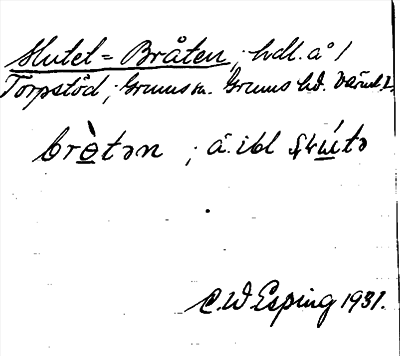 Slutet = Bråten, hdl. å /
Torpstöd, Grums sn. Grums hd. Värml. l.
bròtən ; å. ibl
C.W Esping 1931.